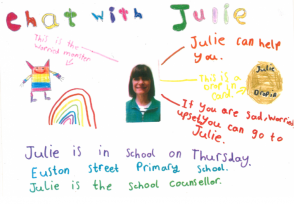 Chat with Julie
This is the
worried monster.
Julie can help
you.
This is a
drop in
card.
Julie
Drop in
If you are sad, worried
upset you can go to
Julie.
Julie is in school on Thursday.
Euston street Primary School.
Julie is the school counsellor.